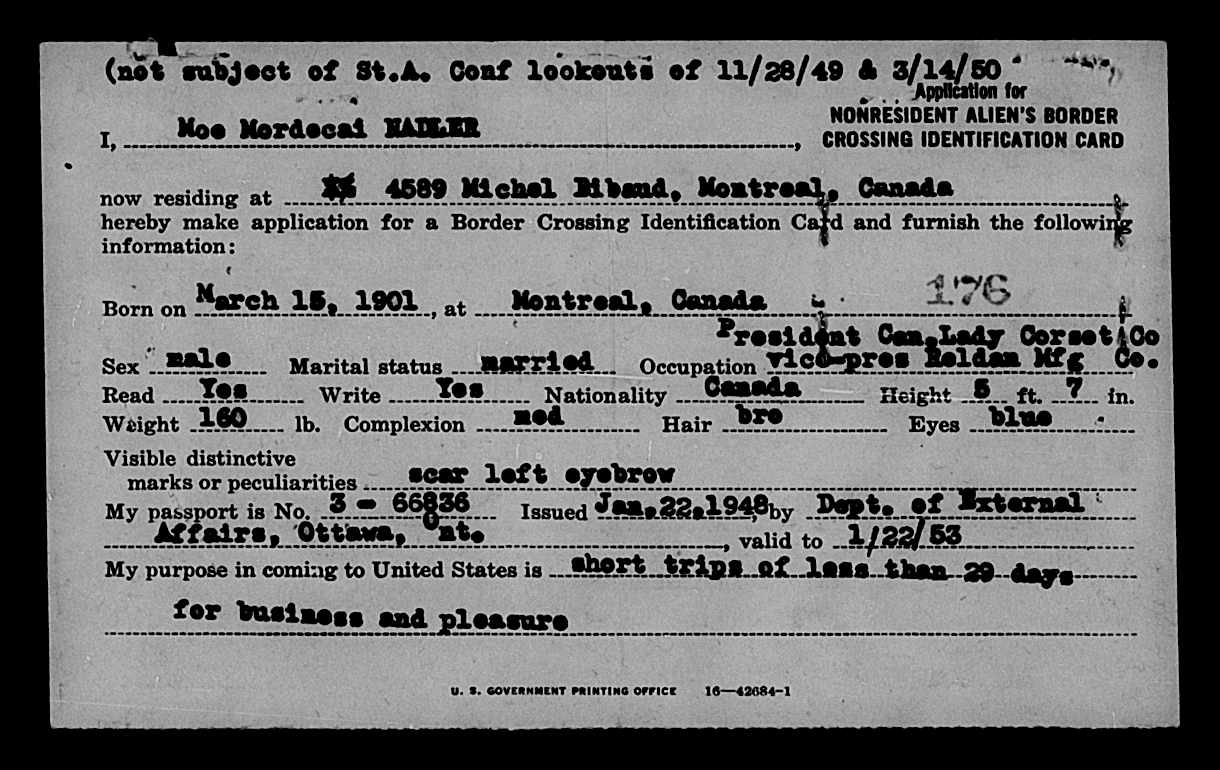 (not subject of St.A. Conf lookouts of 11/28/49 & 3/14/50
Application for
NONRESIDENT ALIEN'S BORDER
CROSSING IDENTIFICATION CARD
I, Moe Mordecai NADLER,
now residing at 4589 Michel Bibaud, Montreal, Canada
hereby make application for a Border Crossing Identification Card and furnish the following
information:
176
Born on March 15, 1901, at Montreal, Canada
President Can.Lady Corset Co
Sex male Marital status married Occupation vice-pres Heldan Mfg Co.
Read Yes Write Yes Nationality Canada Height 5 ft. 7 in.
Weight 160 lb. Complexion med Hair bro Eyes blue
Visible distinctive
marks or peculiarities scar left eyebrow
My passport is No. 3 - 66836 Issued Jan.22,1948, by Dept. of External
Affairs, Ottawa, Ont., valid to 1/22/53
My purpose in coming to United States is short trips of less than 29 days
for business and pleasure
U. S. GOVERNMENT PRINTING OFFICE 16—42684-1